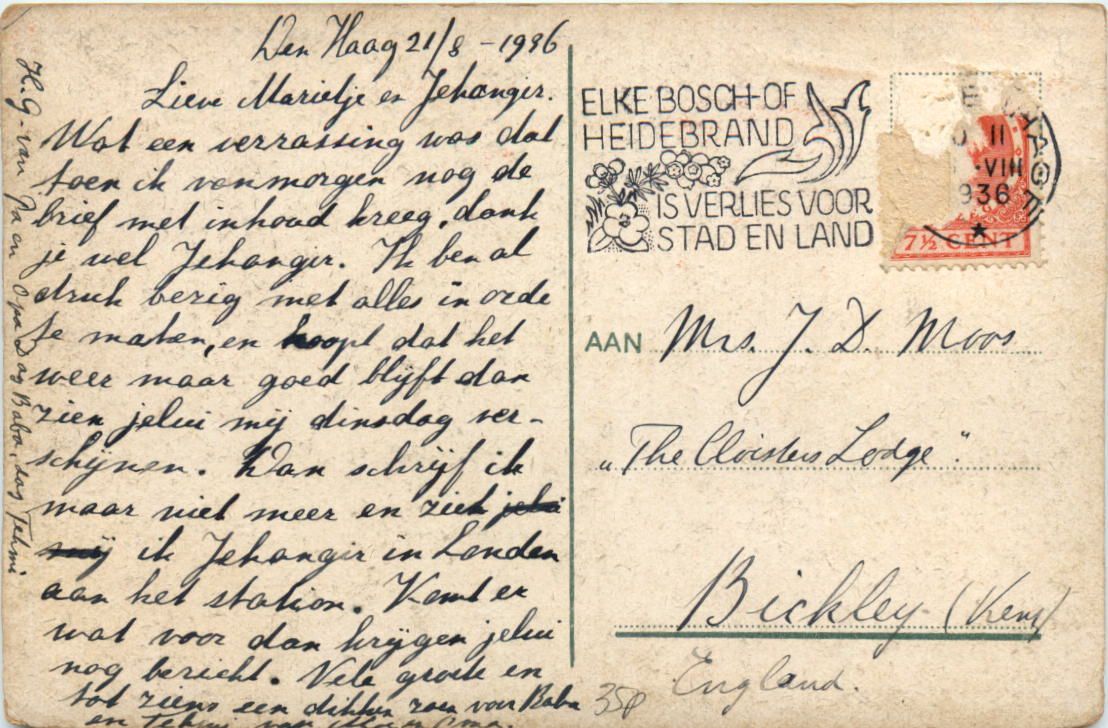 Den Haag 21/8 - 1936
Lieve Marietje en Jehangir.
Wat een verrassing was dat
toen ik vanmorgen nog de
brief met inhoud kreeg, dank
je wel Jehangir. Ik ben al
druk bezig met alles in orde
te maken, en hoopt dat het
weer maar goed blijft dan
zien jelui mij dinsdag ver-
schijnen. Dan schrijf ik
maar niet meer en ziet jelui
mij ik Jehangir in Londen
aan het station. Komt er
wat voor dan krijgen jelui
nog bericht. Vele groete en
tot ziens een dikken zoen voor Baba
en Tehmi van
H.G. van Pa en Opa Dag Baba, dag Tehmi
ELKE BOSCH- OF
HEIDEBRAND
IS VERLIES VOOR
STAD EN LAND
II
VIII
936
7½ CENT
AAN Mrs. J. D. Moos
„The Cloisters Lodge".
Bickley (Kent)
England.
35p